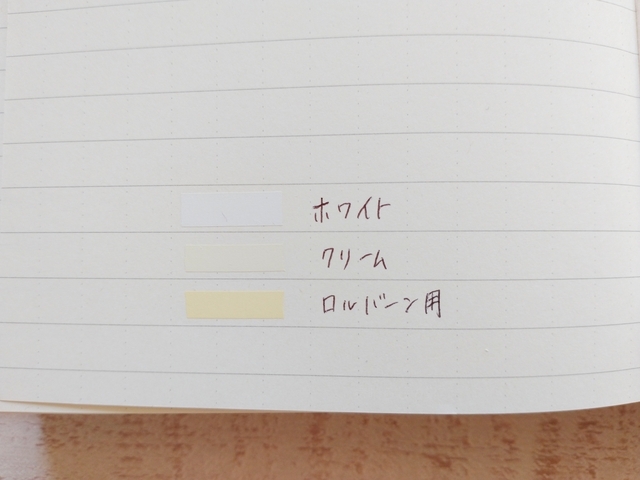 ホワイト
クリーム
ロルバーン用